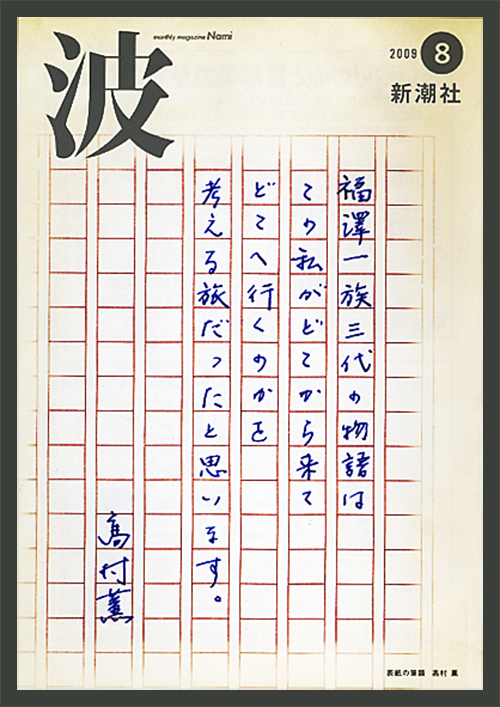 波
monthly magazine Nami
2009 8
新潮社
福澤一族三代の物語は
この私がどこから来て
どこへ行くのかを
考える旅だったと思います。
髙村薫
表紙の筆蹟 髙村 薫